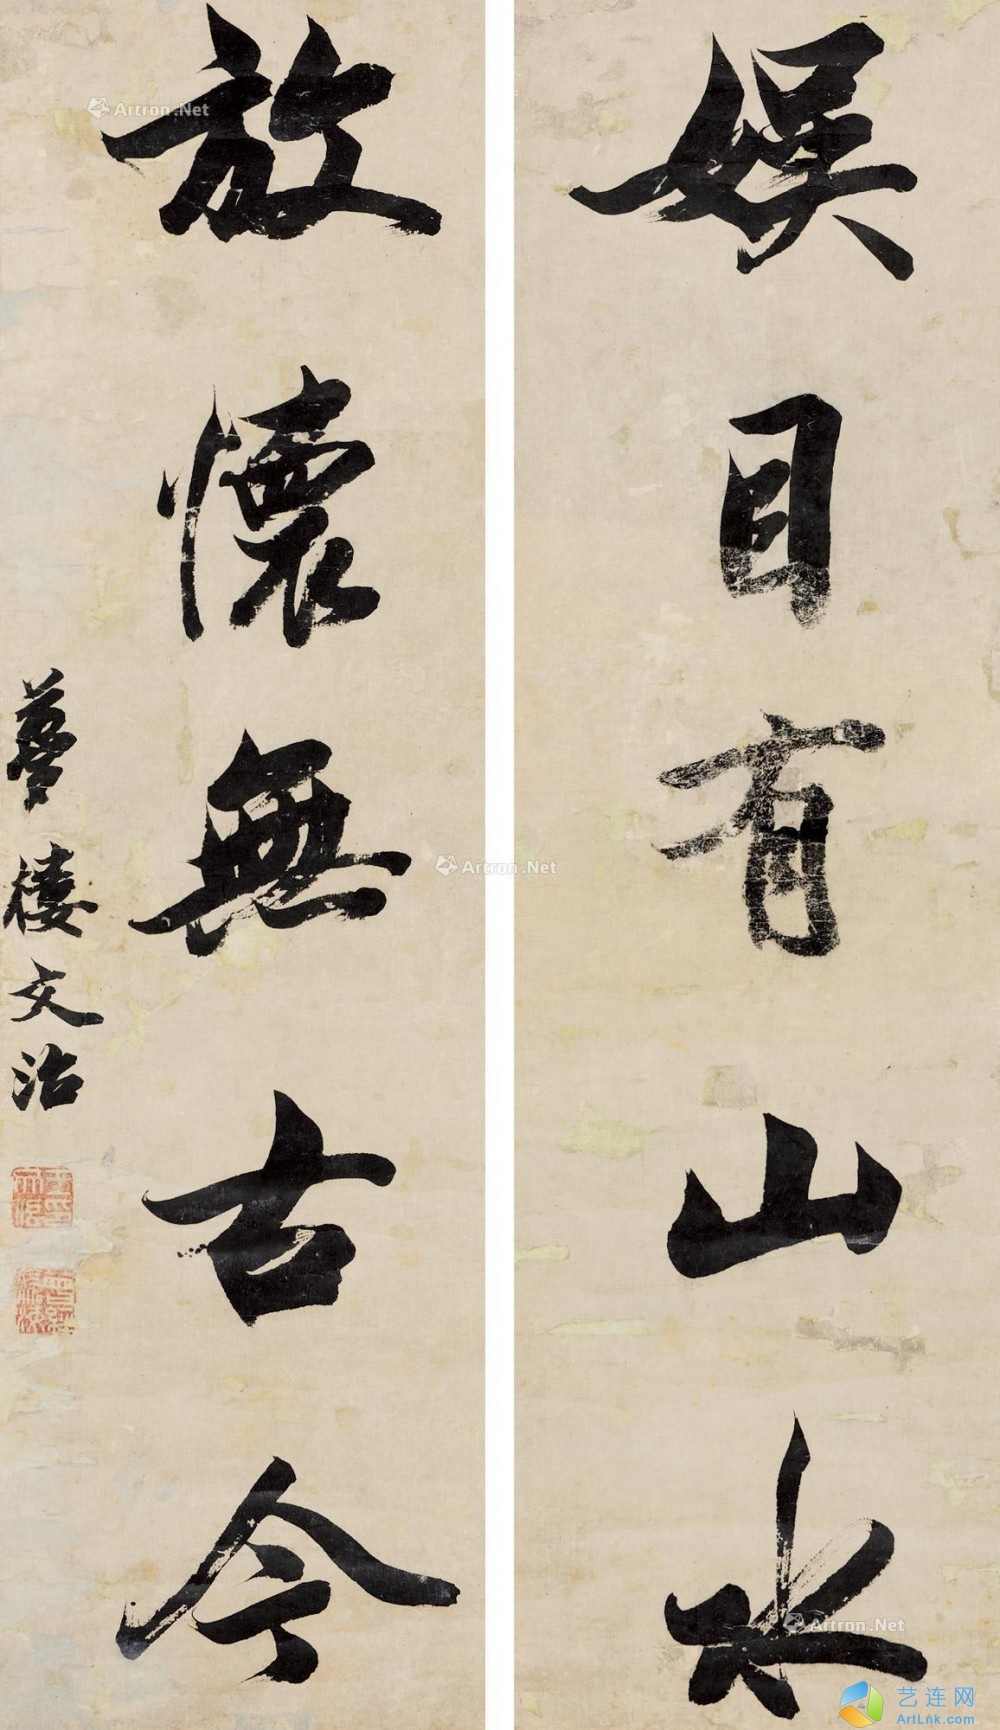 娱目有山水
放懷無古今
夢樓文治
Artron.Net
Artron.Net
Artron.Net
艺连网
ArtLnk.com